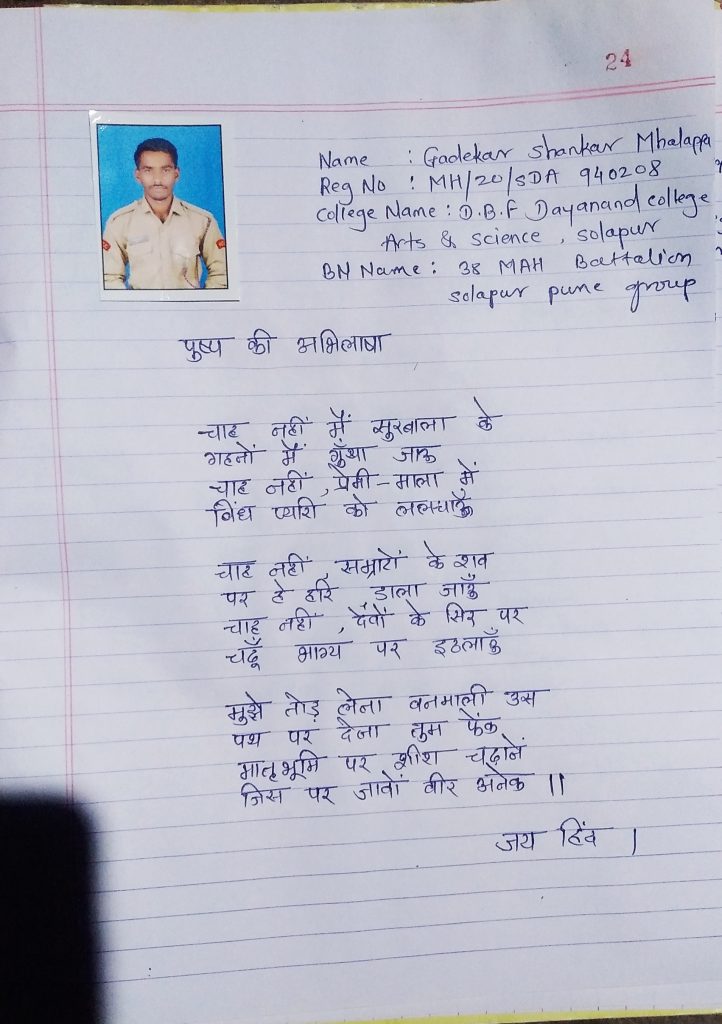 24
Name : Gadekar Shankar Mhalappa
Reg No : MH/20/SDA 940208
College Name : D.B.F Dayanand college
Arts & Science , Solapur
BN Name : 38 MAH Battalion
Solapur pune group
पुष्प की अभिलाषा
चाह नहीं मैं सुरबाला के
गहनों में गुँथा जाऊ
चाह नहीं , प्रेमी - माला में
बिंध प्यारी को ललचाऊँ
चाह नहीं , सम्राटों के शव
पर हे हरि , डाला जाऊँ
चाह नहीं , देवों के सिर पर
चढूँ भाग्य पर इठलाऊँ
मुझे तोड़ लेना वनमाली उस
पथ पर देना तुम फेंक
मातृभूमि पर शीश चढ़ानें
जिस पर जावों वीर अनेक ॥
जय हिंद ।